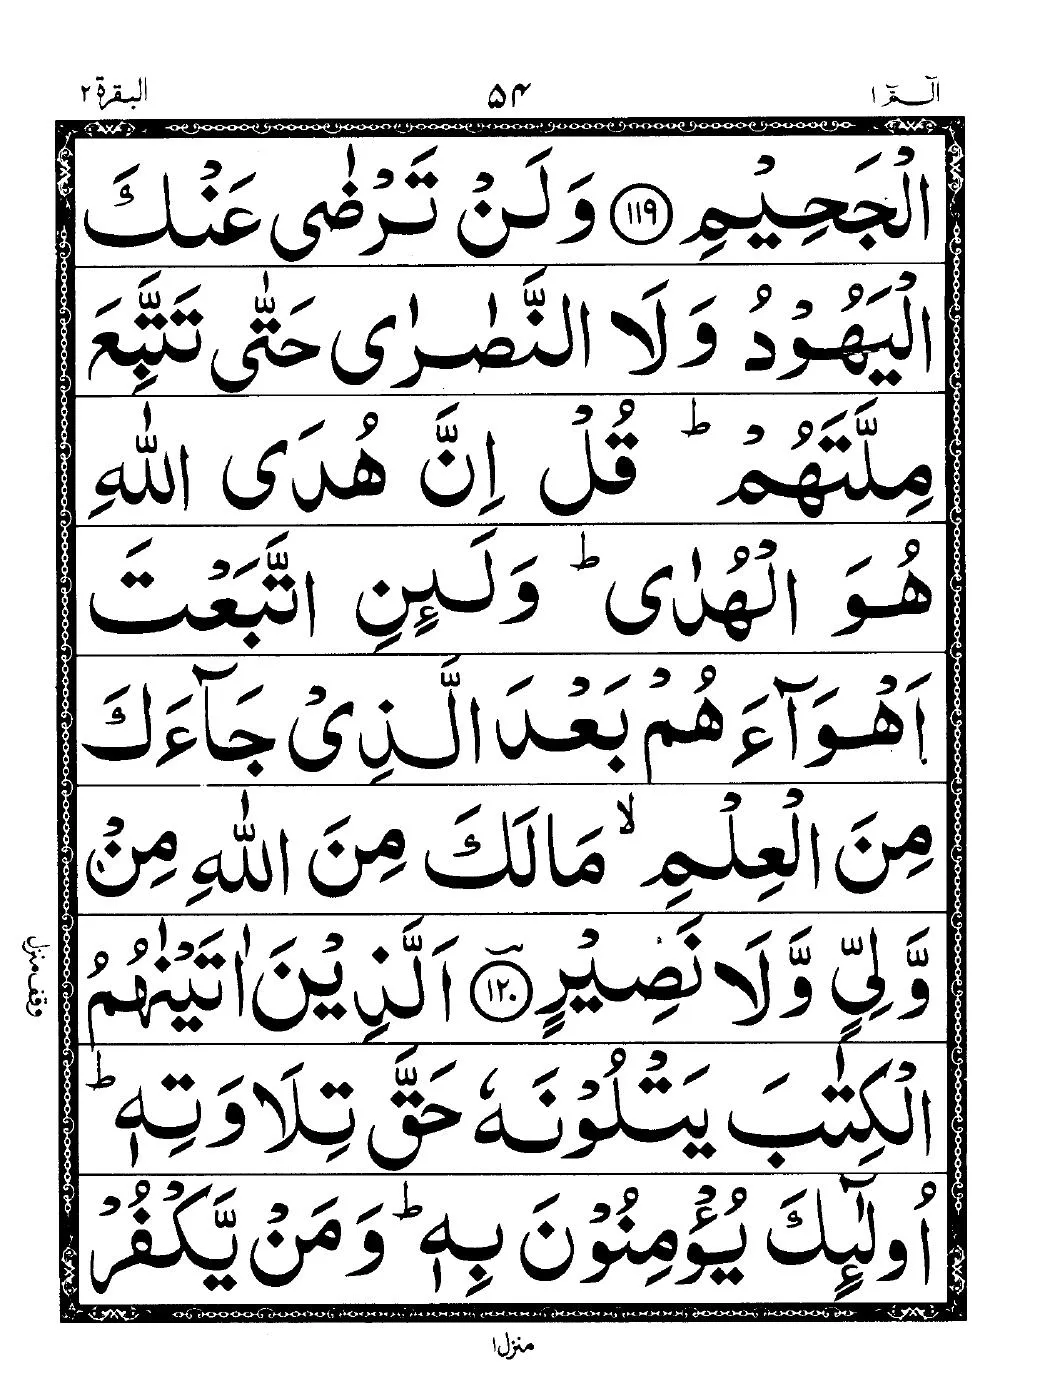 الٓمّٓ ١
۵۴
البقرة ٢
الْجَحِيْمِ ۝۱۱۹ وَلَنْ تَرْضٰى عَنْكَ
الْيَهُوْدُ وَلَا النَّصٰرٰى حَتّٰى تَتَّبِعَ
مِلَّتَهُمْ ؕ قُلْ اِنَّ هُدَى اللّٰهِ
هُوَ الْهُدٰى ؕ وَلَئِنِ اتَّبَعْتَ
اَهْوَآءَهُمْ بَعْدَ الَّذِىْ جَآءَكَ
مِنَ الْعِلْمِ ۙ مَالَكَ مِنَ اللّٰهِ مِنْ
وَّلِىٍّ وَّلَا نَصِيْرٍ ۝۱۲۰ اَلَّذِيْنَ اٰتَيْنٰهُمُ
الْكِتٰبَ يَتْلُوْنَهٗ حَقَّ تِلَاوَتِهٖ ؕ
اُولٰٓئِكَ يُؤْمِنُوْنَ بِهٖ ؕ وَمَنْ يَّكْفُرْ
وقف منزل
منزل ١